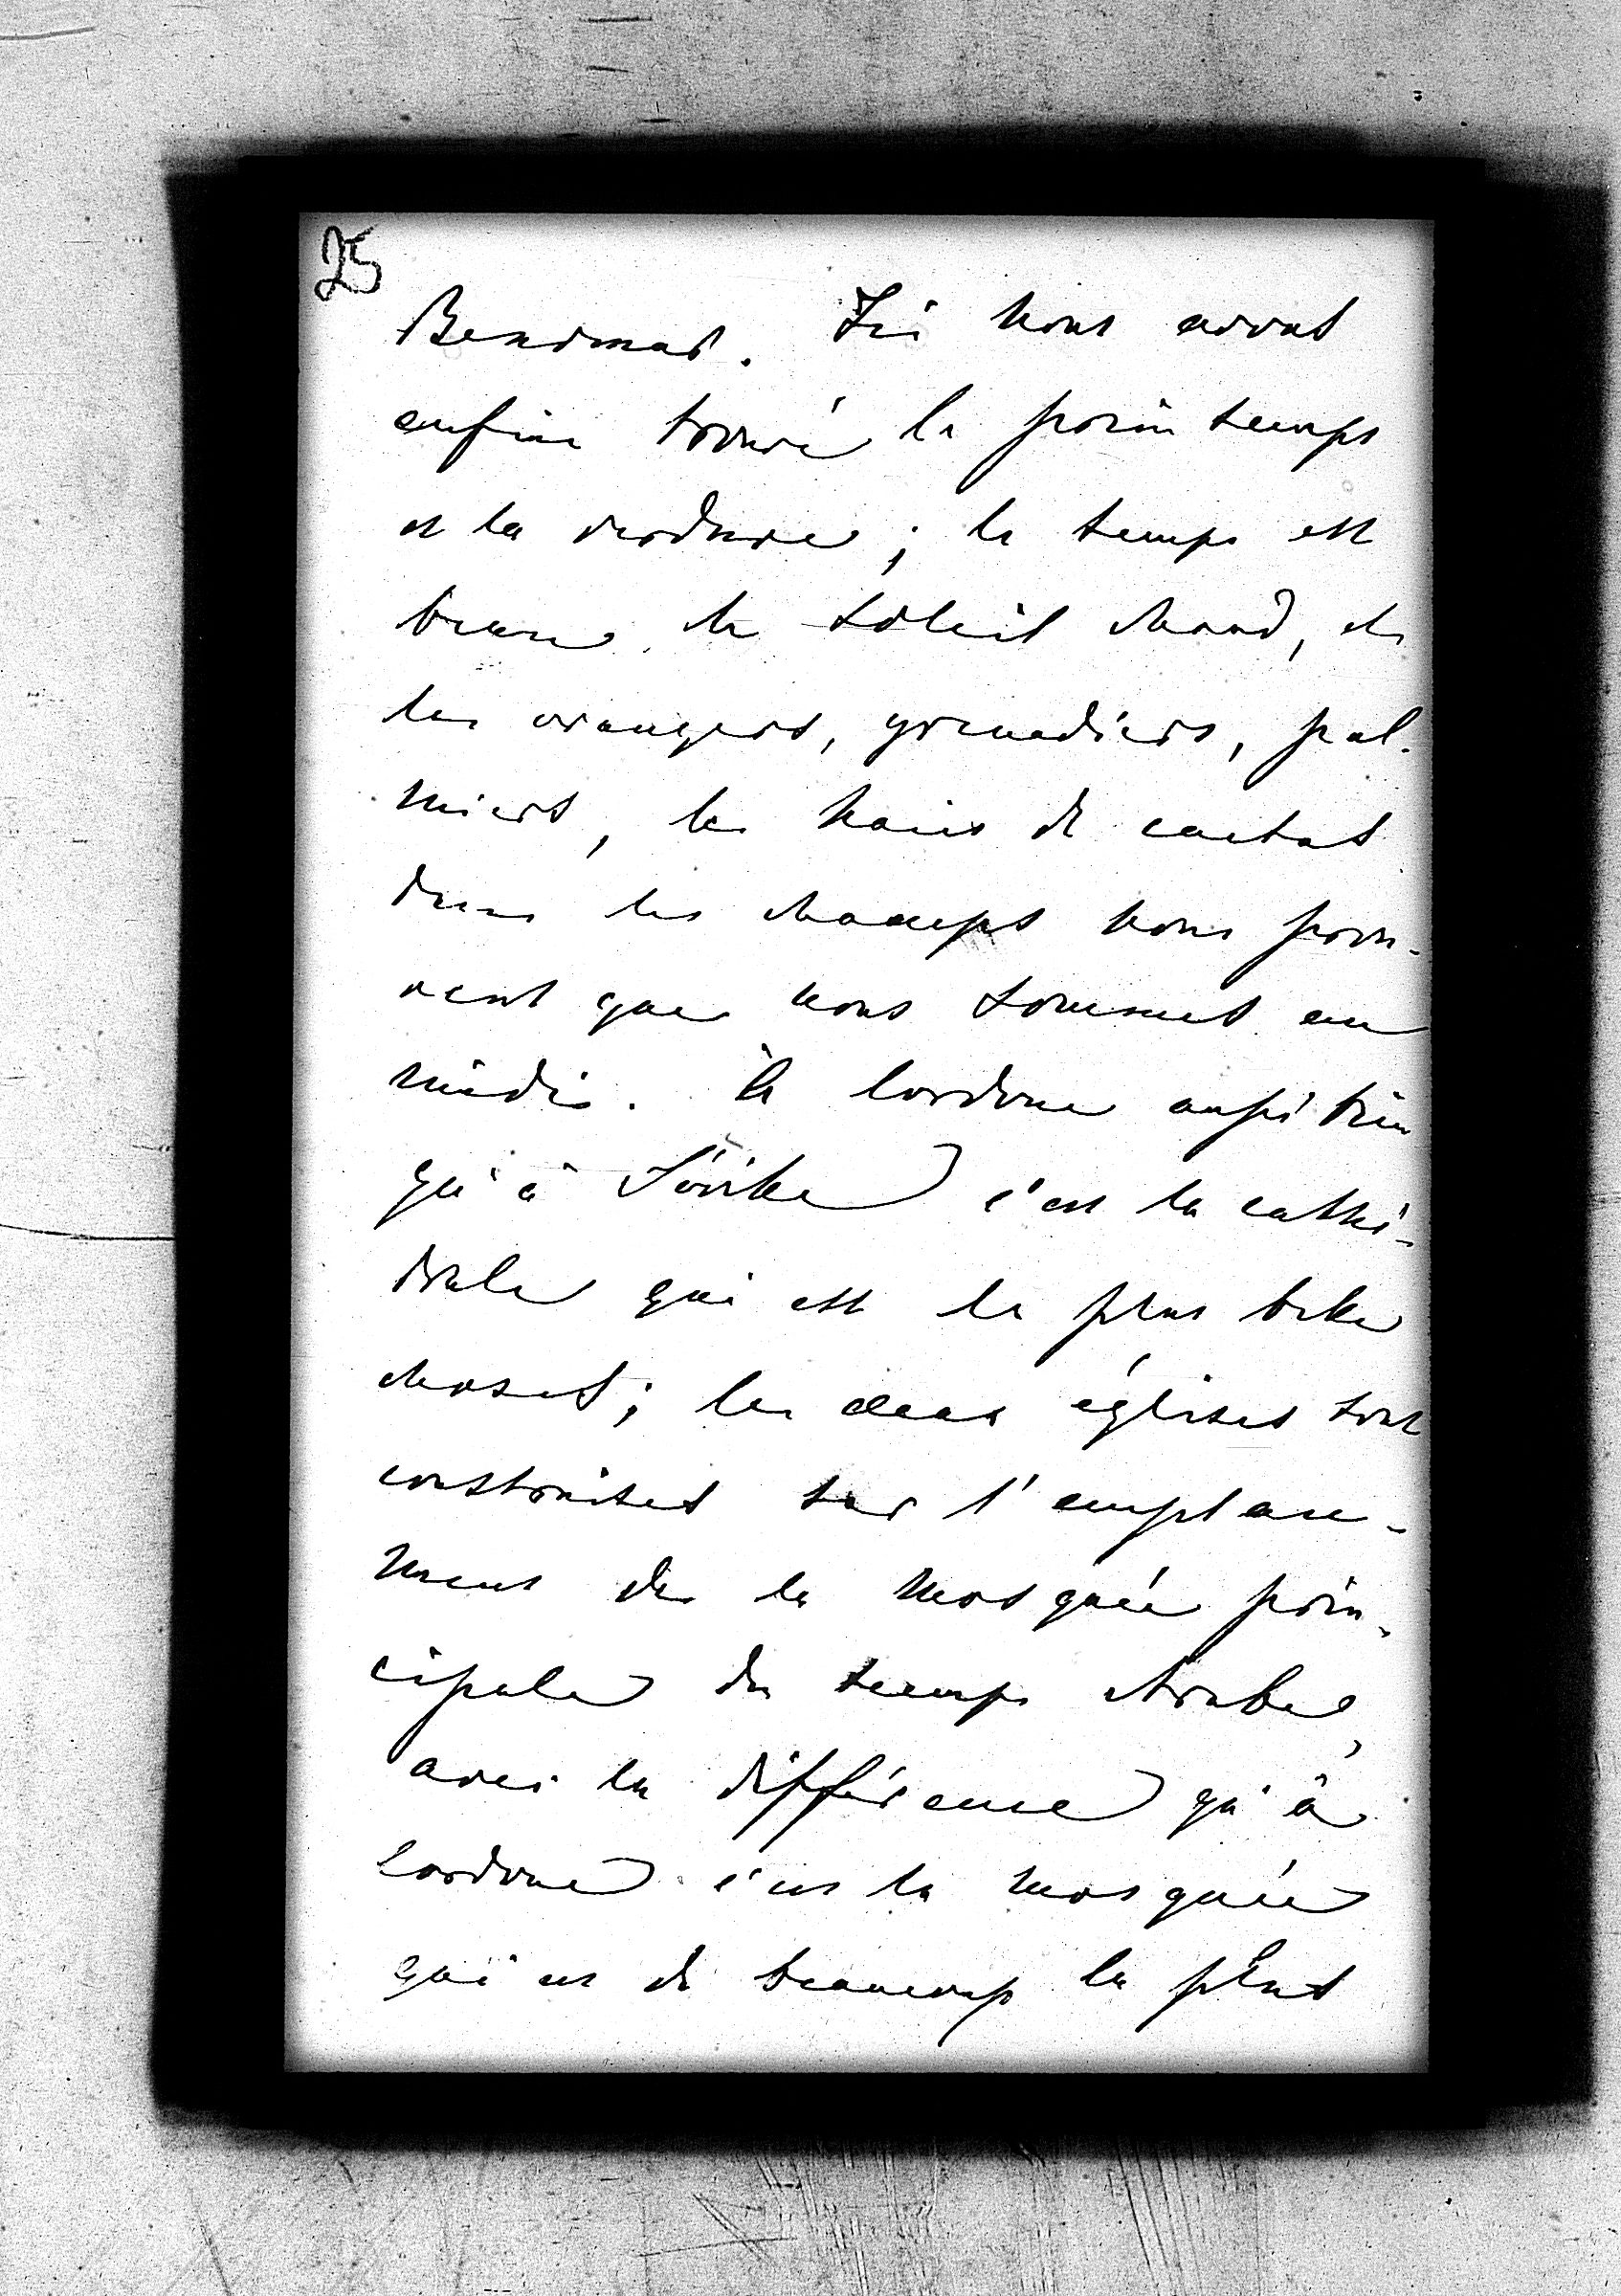 25
Bendmar. Ici nous avons
enfin trouvé le prin temps
et la verdure; le temps est
beau, le soleil chaud, et
les orangers, grenadiers, pal-
miers, les haies de cactus
dans les champs nous prou-
vent que nous sommes au
midi. À Cordoue aussi bien
qu'à Séville c'est la cathé-
drale qui est la plus belle
chose; les deux églises sont
construites sur l'emplace-
ment de la mosquée prin-
cipale du temps Arabe,
avec la différence qu'à
Cordoue c'est la mosquée
qui est de beaucoup la plus